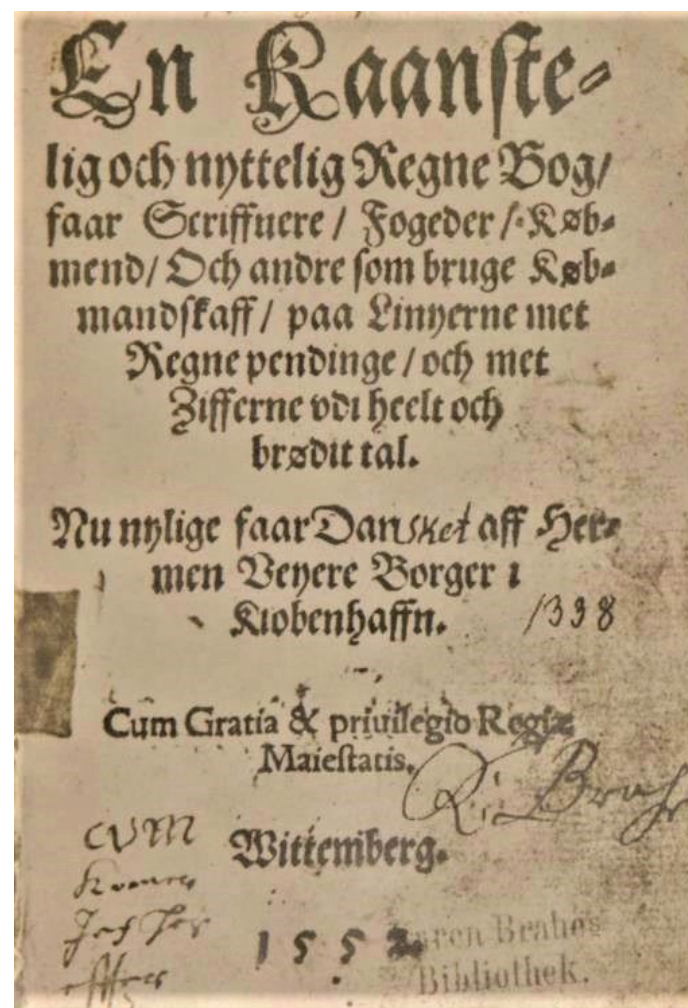 En Kaanste-
lig och nyttelig Regne Bog/
faar Scriffuere / Fogeder / Køb-
mend / Och andre som bruge Køb-
mandskaff / paa Linyerne met
Regne pendinge / och met
Zifferne vdi heelt och
brødit tal.
Nu nylige faar Dansket aff Her-
men Veyere Borger i
Kiøbenhaffn. 1338
Cum Gratia & priuilegio Regiæ
Maiestatis.
K: Brahe
CVM
Wittemberg.
1552.
Karen Brahes
Bibliothek.